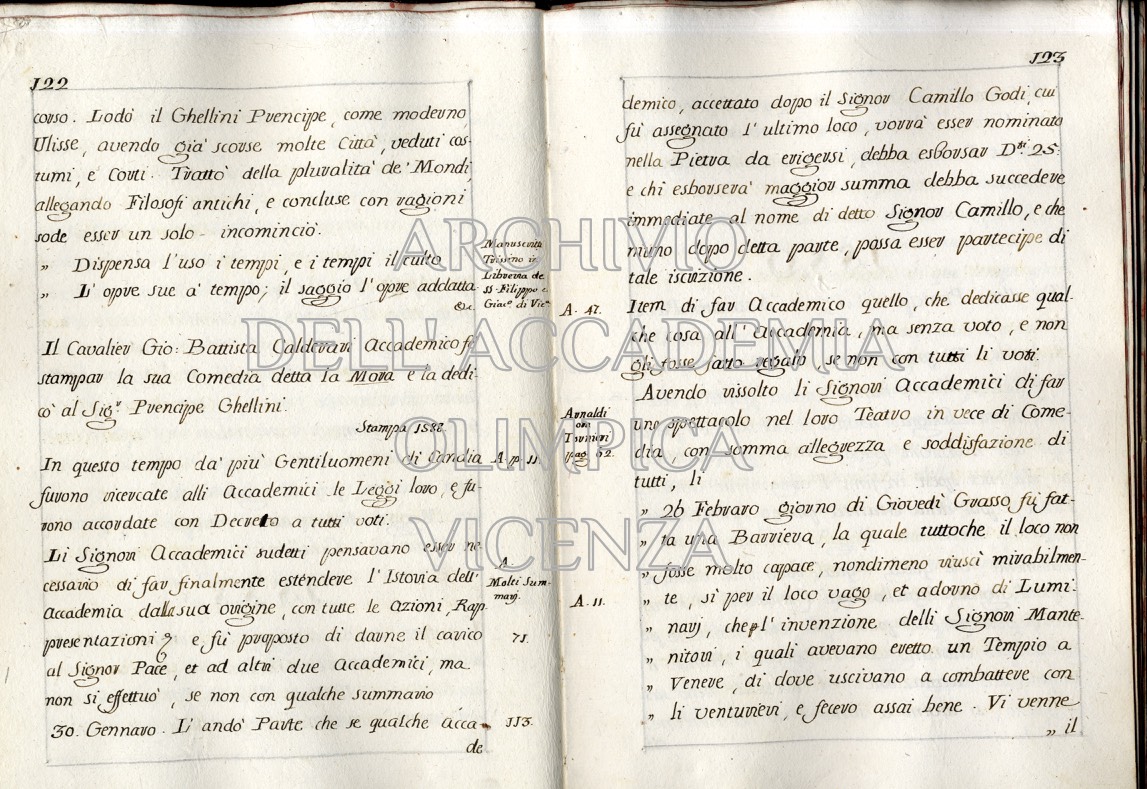 122
corso. Lodò il Ghellini Prencipe, come moderno
Ulisse, avendo già scorse molte Città, veduti cos-
tumi, e Corti. Trattò della pluralità de' Mondi,
allegando Filosofi antichi, e concluse con ragioni
sode esser un solo - incominciò.
„ Dispensa l'uso i tempi, e i tempi il culto
„ L' opre sue a' tempo; il saggio l'opre addatta
&c.
Manuscritti
Trissino in
Libreria de
SS. Filippo e
Giac.º di Vic.ª
Il Cavalier Gio: Battista Calderari Accademico fe
stampar la sua Comedia detta la Mora e la dedi-
cò al Sig.r Prencipe Ghellini.
Stampa 1588.
In questo tempo da' più Gentiluomeni di Candia
A. p. 11.
furono ricercate alli Accademici le Leggi loro, e fu-
rono accordate con Decreto a tutti voti.
Li Signori Accademici sudetti pensavano esser ne-
cessario di far finalmente esténdere l'Istoria dell'
Accademia dalla sua origine, con tutte le azioni, Rap-
presentazioni e fù proposto di darne il carico
al Signor Pace, et ad altri due Accademici, ma
non si effettuò, se non con qualche summario
A.
Molti Sum-
marj.
71.
30. Gennaro. L' andò Parte che se qualche Acca-
113.
de
123
demico, accettato dopo il Signor Camillo Godi, cui
fù assegnato l'ultimo loco, vorrà esser nominato
nella Pietra da erigersi, debba esborsar D.ti 25:
e chi esborserà maggior summa debba succedere
immediate al nome di detto Signor Camillo, e che
niuno dopo detta parte, possa esser partecipe di
tale iscrizione.
A. 47.
Item di far Accademico quello, che dedicasse qual-
che cosa all' Accademia, ma senza voto, e non
gli fosse fatto regalo, se non con tutti li voti.
Avendo risolto li Signori Accademici di far
uno spettacolo nel loro Teatro in vece di Come-
dia, con somma allegrezza e soddisfazione di
tutti, li
Arnaldi
Tornieri
pag. 62.
„ 26 Febraro giorno di Giovedì Grasso fù fat-
„ ta una Barriera, la quale tuttoche il loco non
„ fosse molto capace, nondimeno riuscì mirabilmen-
„ te, sì per il loco vago, et adorno di Lumi-
A. 11.
„ narj, che pl' invenzione delli Signori Mante-
„ nitori, i quali avevano eretto un Tempio a
„ Venere, di dove uscivano a combattere con
„ li venturieri, e fecero assai bene. Vi venne
„ il
ARCHIVIO
DELL'ACCADEMIA
OLIMPICA
VICENZA